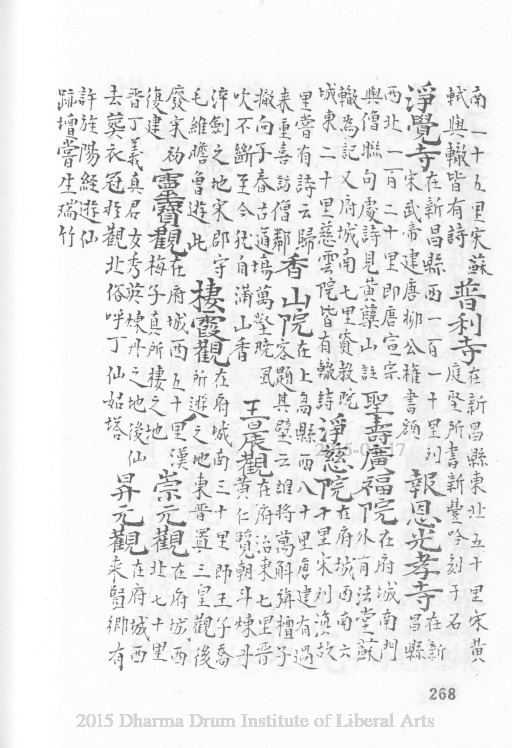 南一十五里宋蘇
軾與轍皆有詩
普利寺
在新昌縣東北五十里宋黃
庭堅所書新豐吟刻于石
淨覺寺
在新昌縣西一百一十里刋
宋武帝建唐柳公權書額
報恩光孝寺
在新
昌縣
西北一百二十里即唐宣宗
與僧聯句處詩見黃蘗山註
聖壽廣福院
在府城南門
外有法堂蘇
轍為記又府城南七里資教院
城東二十里慈雲院皆有轍詩
淨慈院
在府城西南六
十里宋刋滇故
里嘗有詩云歸
來重喜訪僧鄰
香山院
在上高縣西八十里唐建有過
客題其壁云誰將萬斛旃檀子
撒向千春古道塲萬壑晚風
吹不斷至今犹自滿山香
玉晨觀
在府治東七里晉
黃仁覽朝斗煉丹
淬劍之地宋郡守
毛維瞻曾遊此
棲霞觀
在府城南三十里即王子喬
所遊之地東晉置三皇觀後
廢宋初
復建
靈寶觀
在府城西五十里漢
梅子真所棲之地
崇元觀
在府城西
北七十里
晉丁義真君女秀英煉丹之地後仙
去葬衣冠於觀北俗呼丁仙姑塔
昇元觀
在府城西
來賢鄉有
許旌陽經遊仙
跡壇嘗生瑞竹
268
2015 Dharma Drum Institute of Liberal Arts